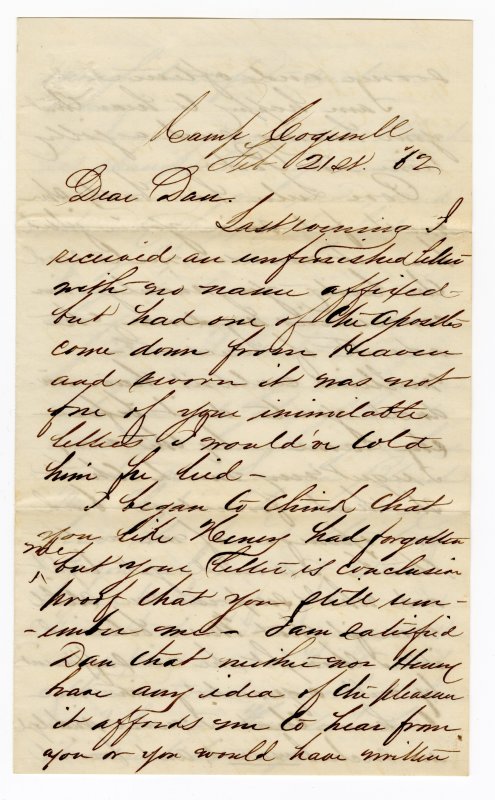 Camp Cogswell
Feb 21st. '62
Dear Dan.
Last evening I
received an unfinished letter
with no name affixed
but had one of the Apostles
come down from Heaven
and sworn it was not
one of your inimitable
letters I would've told
him he lied -
I began to think that
you like Henry had forgotten
me
but your letter is conclusion
proof that you still rem-
-ember me - I am satisfied
Dan that neither nor Henry
have any idea of the pleasure
it affords me to hear from
you or you would have written